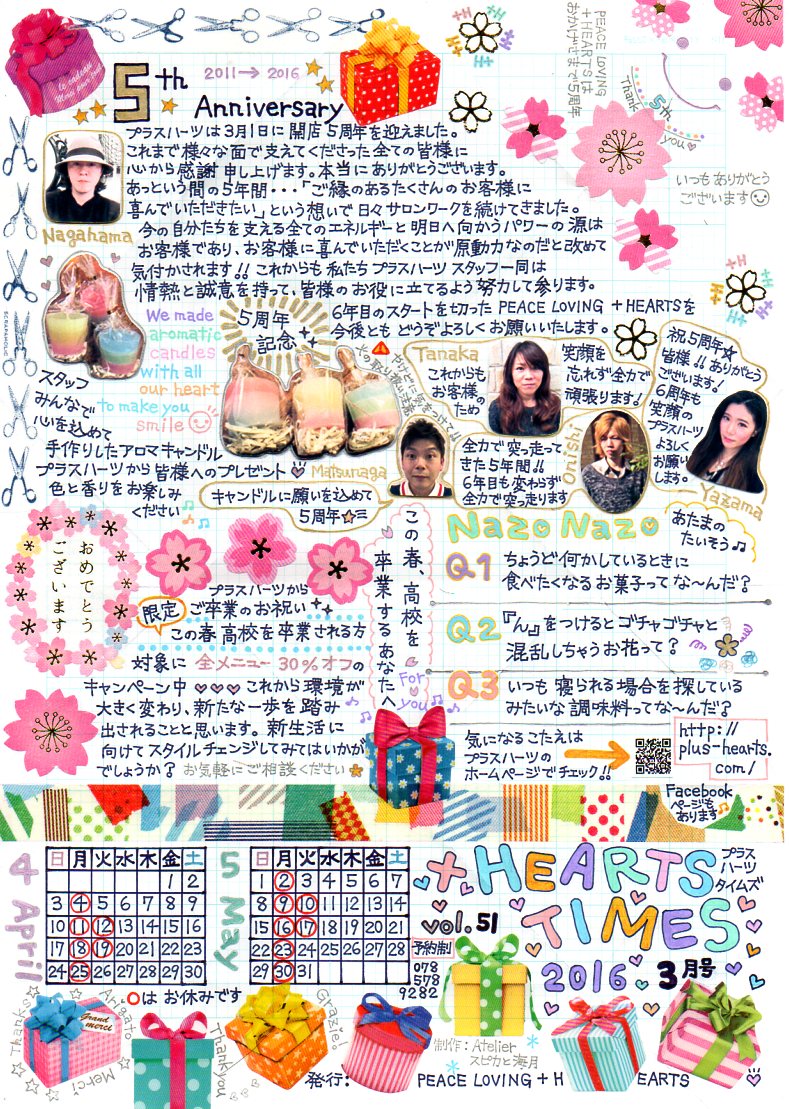 le cadeau
5th
2011→2016
Anniversary
PEACE LOVING
+HEARTSは
おかげさまで5周年
5th
Thank you♡
いつもありがとう
ございます
プラスハーツは3月1日に開店5周年を迎えました。
これまで様々な面で支えてくださった全ての皆様に
心から感謝申し上げます。本当にありがとうございます。
あっという間の5年間・・・「ご縁のあるたくさんのお客様に
喜んでいただきたい」という想いで日々サロンワークを続けてきました。
今の自分たちを支える全てのエネルギーと明日へ向かうパワーの源は
お客様であり、お客様に喜んでいただくことが原動力なのだと改めて
気付かされます!!これからも私たちプラスハーツスタッフ一同は
情熱と誠意を持って、皆様のお役に立てるよう努力して参ります。
6年目のスタートを切ったPEACE LOVING +HEARTSを
今後ともどうぞよろしくお願いいたします。
Nagahama
SCRAPAHOLIC
We made
aromatic
candles
with all
our heart
to make you
smile
5周年
記念
スタッフ
みんなで
心を込めて
手作りしたアロマキャンドル
プラスハーツから皆様へのプレゼント
色と香りをお楽しみ
ください♪
Matsunaga
キャンドルに願いを込めて
5周年☆
Tanaka
これからも
お客様の
ため
笑顔を
忘れず全力で
頑張ります!
Onishi
全力で突っ走って
きた5年間!!
6年目も変わらず
全力で突っ走ります
祝5周年☆
皆様!!ありがとう
ございます!
6周年も
笑顔の
プラスハーツ
よろしく
お願い
します。
Yazama
おめでとう
ございます
プラスハーツから
限定
ご卒業のお祝い
この春高校を卒業される方
対象に 全メニュー30%オフの
キャンペーン中♡♡♡これから環境が
大きく変わり、新たな一歩を踏み
出されることと思います。新生活に
向けてスタイルチェンジしてみてはいかが
でしょうか?お気軽にご相談ください★
この春、高校を
卒業するあなたへ
For you
Nazo Nazo
あたまの
たいそう♪
Q1 ちょうど何かしているときに
食べたくなるお菓子ってな〜んだ?
Q2 『ん』をつけるとゴチャゴチャと
混乱しちゃうお花って?
Q3 いつも寝られる場合を探している
みたいな調味料ってな〜んだ?
気になるこたえは
プラスハーツの
ホームページでチェック!!
http://
plus-hearts.
com/
Facebook
ページも
あります
4 April
日 月 火 水 木 金 土
1 2
3 4 5 6 7 8 9
10 11 12 13 14 15 16
17 18 19 20 21 22 23
24 25 26 27 28 29 30
5 May
日 月 火 水 木 金 土
1 2 3 4 5 6 7
8 9 10 11 12 13 14
15 16 17 18 19 20 21
22 23 24 25 26 27 28
29 30 31
○はお休みです
+HEARTS
TIMES
プラス
ハーツ
タイムズ
vol.51
2016 3月号
予約制
078
578
9282
Thanks
Arigato
Grand merci
Merci
Thank you
Grazie!
制作:Atelier
スピカと海月
発行: PEACE LOVING +HEARTS